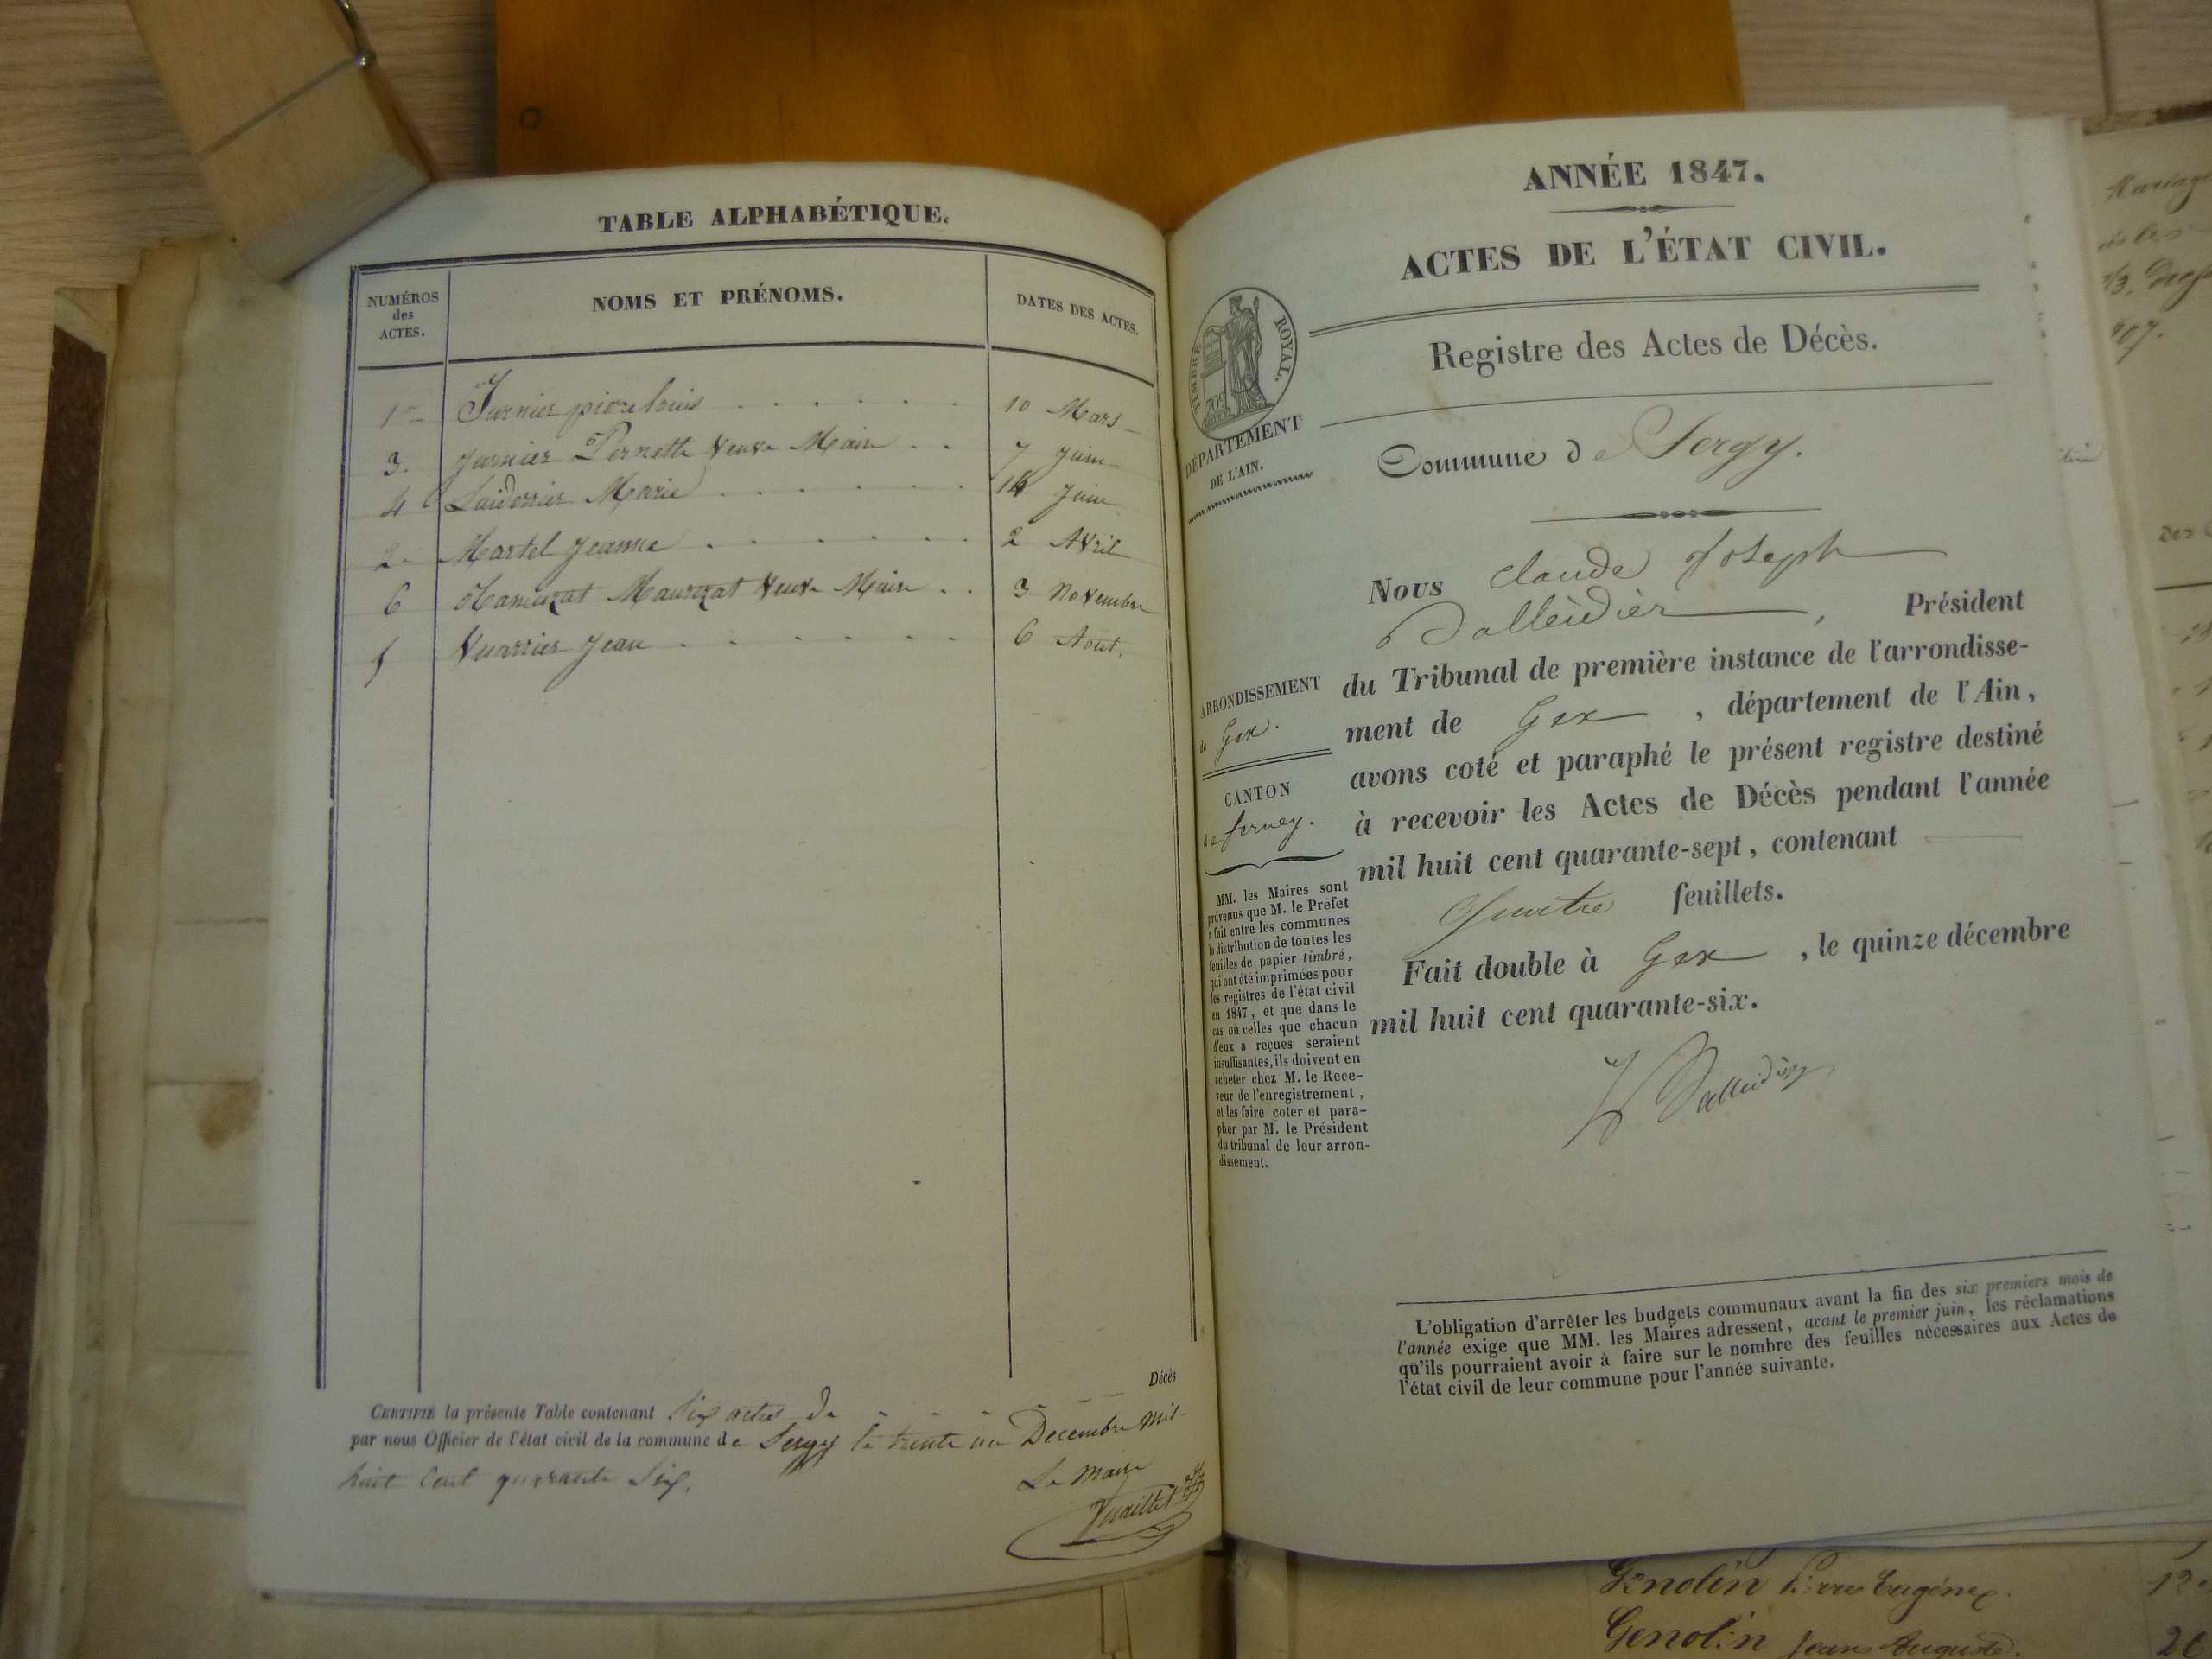 TABLE ALPHABÉTIQUE.
NUMÉROS
des
ACTES.
NOMS ET PRÉNOMS.
DATES DES ACTES.
1er Jurnier pierre louis . . . . . . 10 Mars
3. Jurnier Pernette Veuve Maire . . 7 Juin
4 Laiderrier Marie . . . . . . 14 Juin
2. Martel Jeanne . . . . . . 2 Avril
6 Veuve Maire . . 3 Novembre
5 Vuarrier Jean . . . . . . 6 Aout.
Décès
CERTIFIÉ la présente Table contenant Six actes de
par nous Officier de l'état civil de la commune de Sergy le trente un Décembre Mil
huit Cent quarante Six.
Le Maire
Vuaillet
ANNÉE 1847.
ACTES DE L'ÉTAT CIVIL.
TIMBRE ROYAL.
Registre des Actes de Décès.
DÉPARTEMENT
DE L'AIN.
Commune de Sergy.
Nous Claude Joseph
Dalleidier , Président
du Tribunal de première instance de l'arrondisse-
ment de Gex , département de l'Ain,
avons coté et paraphé le présent registre destiné
à recevoir les Actes de Décès pendant l'année
mil huit cent quarante-sept, contenant
Quatre feuillets.
Fait double à Gex , le quinze décembre
mil huit cent quarante-six.
Dalleidier
ARRONDISSEMENT
de Gex.
CANTON
de ferney.
MM. les Maires sont
prévenus que M. le Préfet
a fait entre les communes
la distribution de toutes les
feuilles de papier timbré,
qui ont été imprimées pour
les registres de l'état civil
en 1847, et que dans le
cas où celles que chacun
d'eux a reçues seraient
insuffisantes, ils doivent en
acheter chez M. le Rece-
veur de l'enregistrement,
et les faire coter et para-
pher par M. le Président
du tribunal de leur arron-
dissement.
L'obligation d'arrêter les budgets communaux avant la fin des six premiers mois de
l'année exige que MM. les Maires adressent, avant le premier juin, les réclamations
qu'ils pourraient avoir à faire sur le nombre des feuilles nécessaires aux Actes de
l'état civil de leur commune pour l'année suivante.
Genolin Pierre Eugène. 12
Genolin Jean Auguste. 26